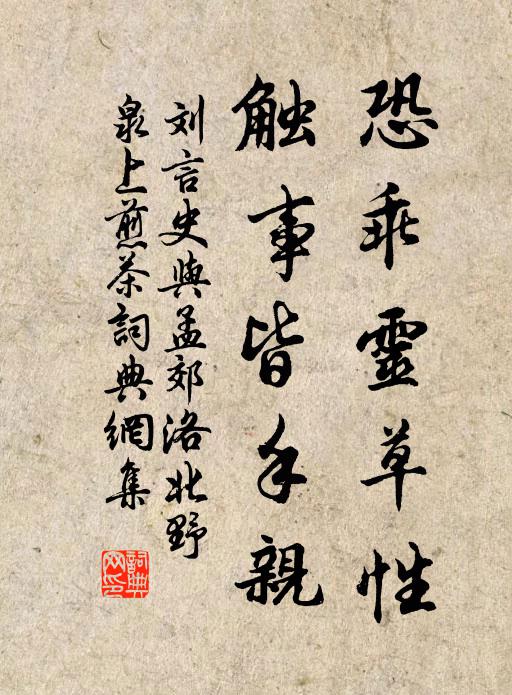 恐乖靈草性
触事皆手親
刘言史與孟郊洛北野
泉上煎茶詞典網集
詞典网印